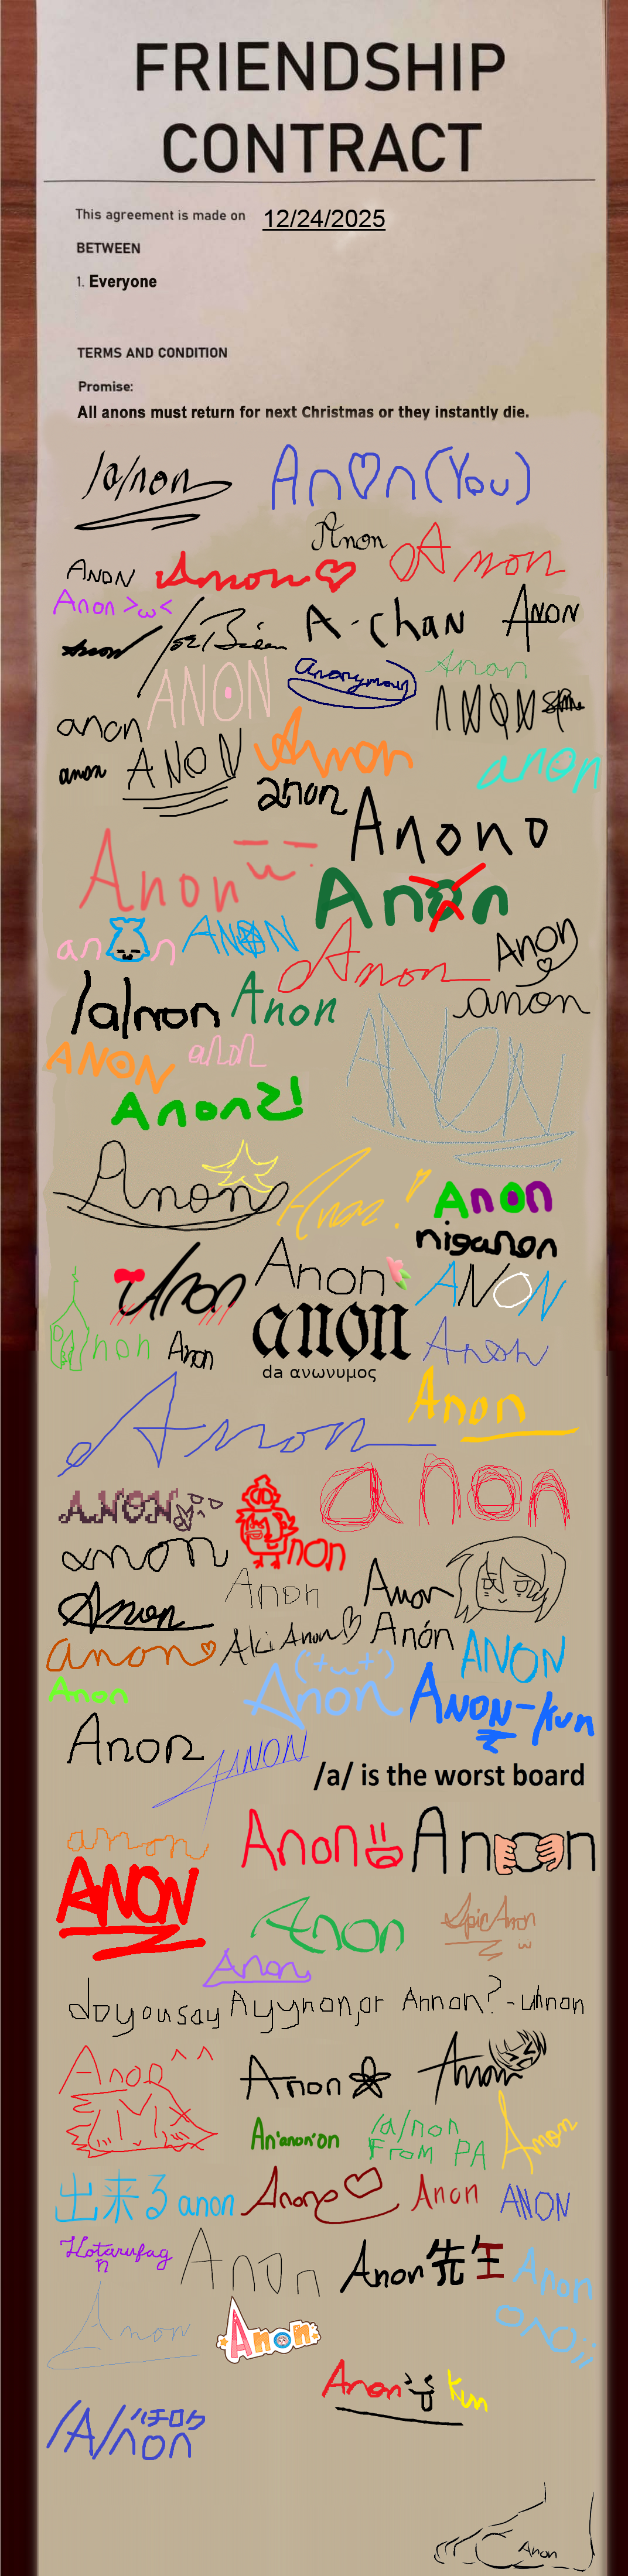 FRIENDSHIP
CONTRACT
This agreement is made on 12/24/2025
BETWEEN
1. Everyone
TERMS AND CONDITION
Promise:
All anons must return for next Christmas or they instantly die.
/a/non
Anon (You)
Anon
Anon
ANON
Anon
Anon >ω<
Anon
Joe Biden
A-chan
Anon
ANON
Anonymous
Anon
anon
ANON
anon
ANON
Anon
anon
anon
Anono
Anon
Anon
an n
ANON
Anon
Anon
/a/non
Anon
anon
ANON
anon
ANON
Anon2!
Anon
Anon!
Anon
niganon
Anon
Anon
ANON
non
Anon
anon
da ανωνυμος
Anon
Anon
Anon
ANON
non
anon
anon
Anon
Anon
Anon
anon
Aki Anon
Anón
ANON
Anon
Anon
ANON-kun
Anon
ANON
/a/ is the worst board
anon
Anon
Anon
ANON
Anon
Epic Anon
Anon
do you say Ayynon, or Annon? - uhnon
Anon ^^
Anon
Anon
An'anon'on
/a/non
FROM PA
Anon
出来る anon
Anon
Anon
ANON
Hotarufag
n
Anon
Anon先生
Anon
Anon
Anon
Anon
kun
/A/non
ハチロク
Anon